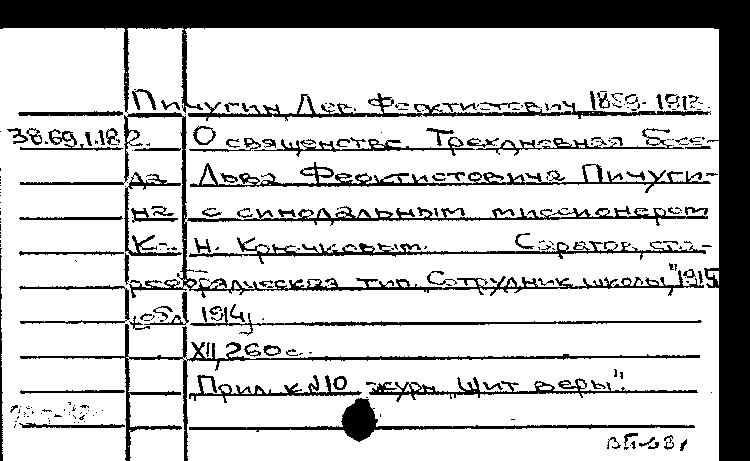 Пичугин, Лев Феоктистович, 1859-1912.
38.69.1.182. О священстве. Трехдневная бесе-
да Льва Феоктистовича Пичуги-
на с синодальным миссионером
Кс. Н. Крючковым. Саратов, ста-
рообрядческая тип. "Сотрудник школы", 1915
[обл. 1914].
XII, 260 с.
Прил. к №10 журн. "Щит веры".